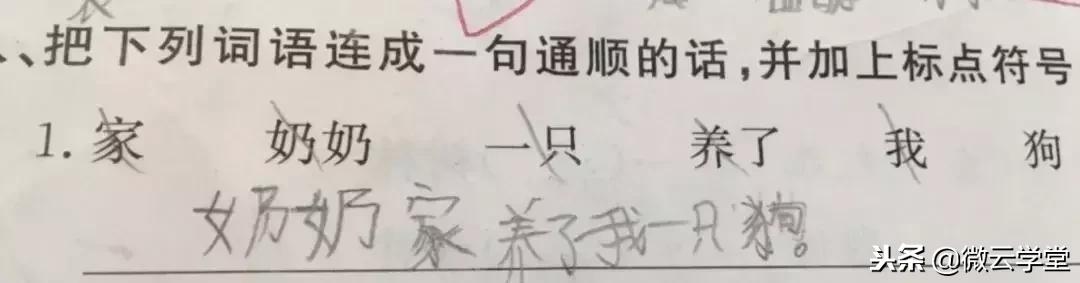 、把下列词语连成一句通顺的话,并加上标点符号
1. 家 奶奶 一只 养了 我 狗
奶奶家养了我一只狗。
头条 @微云学堂